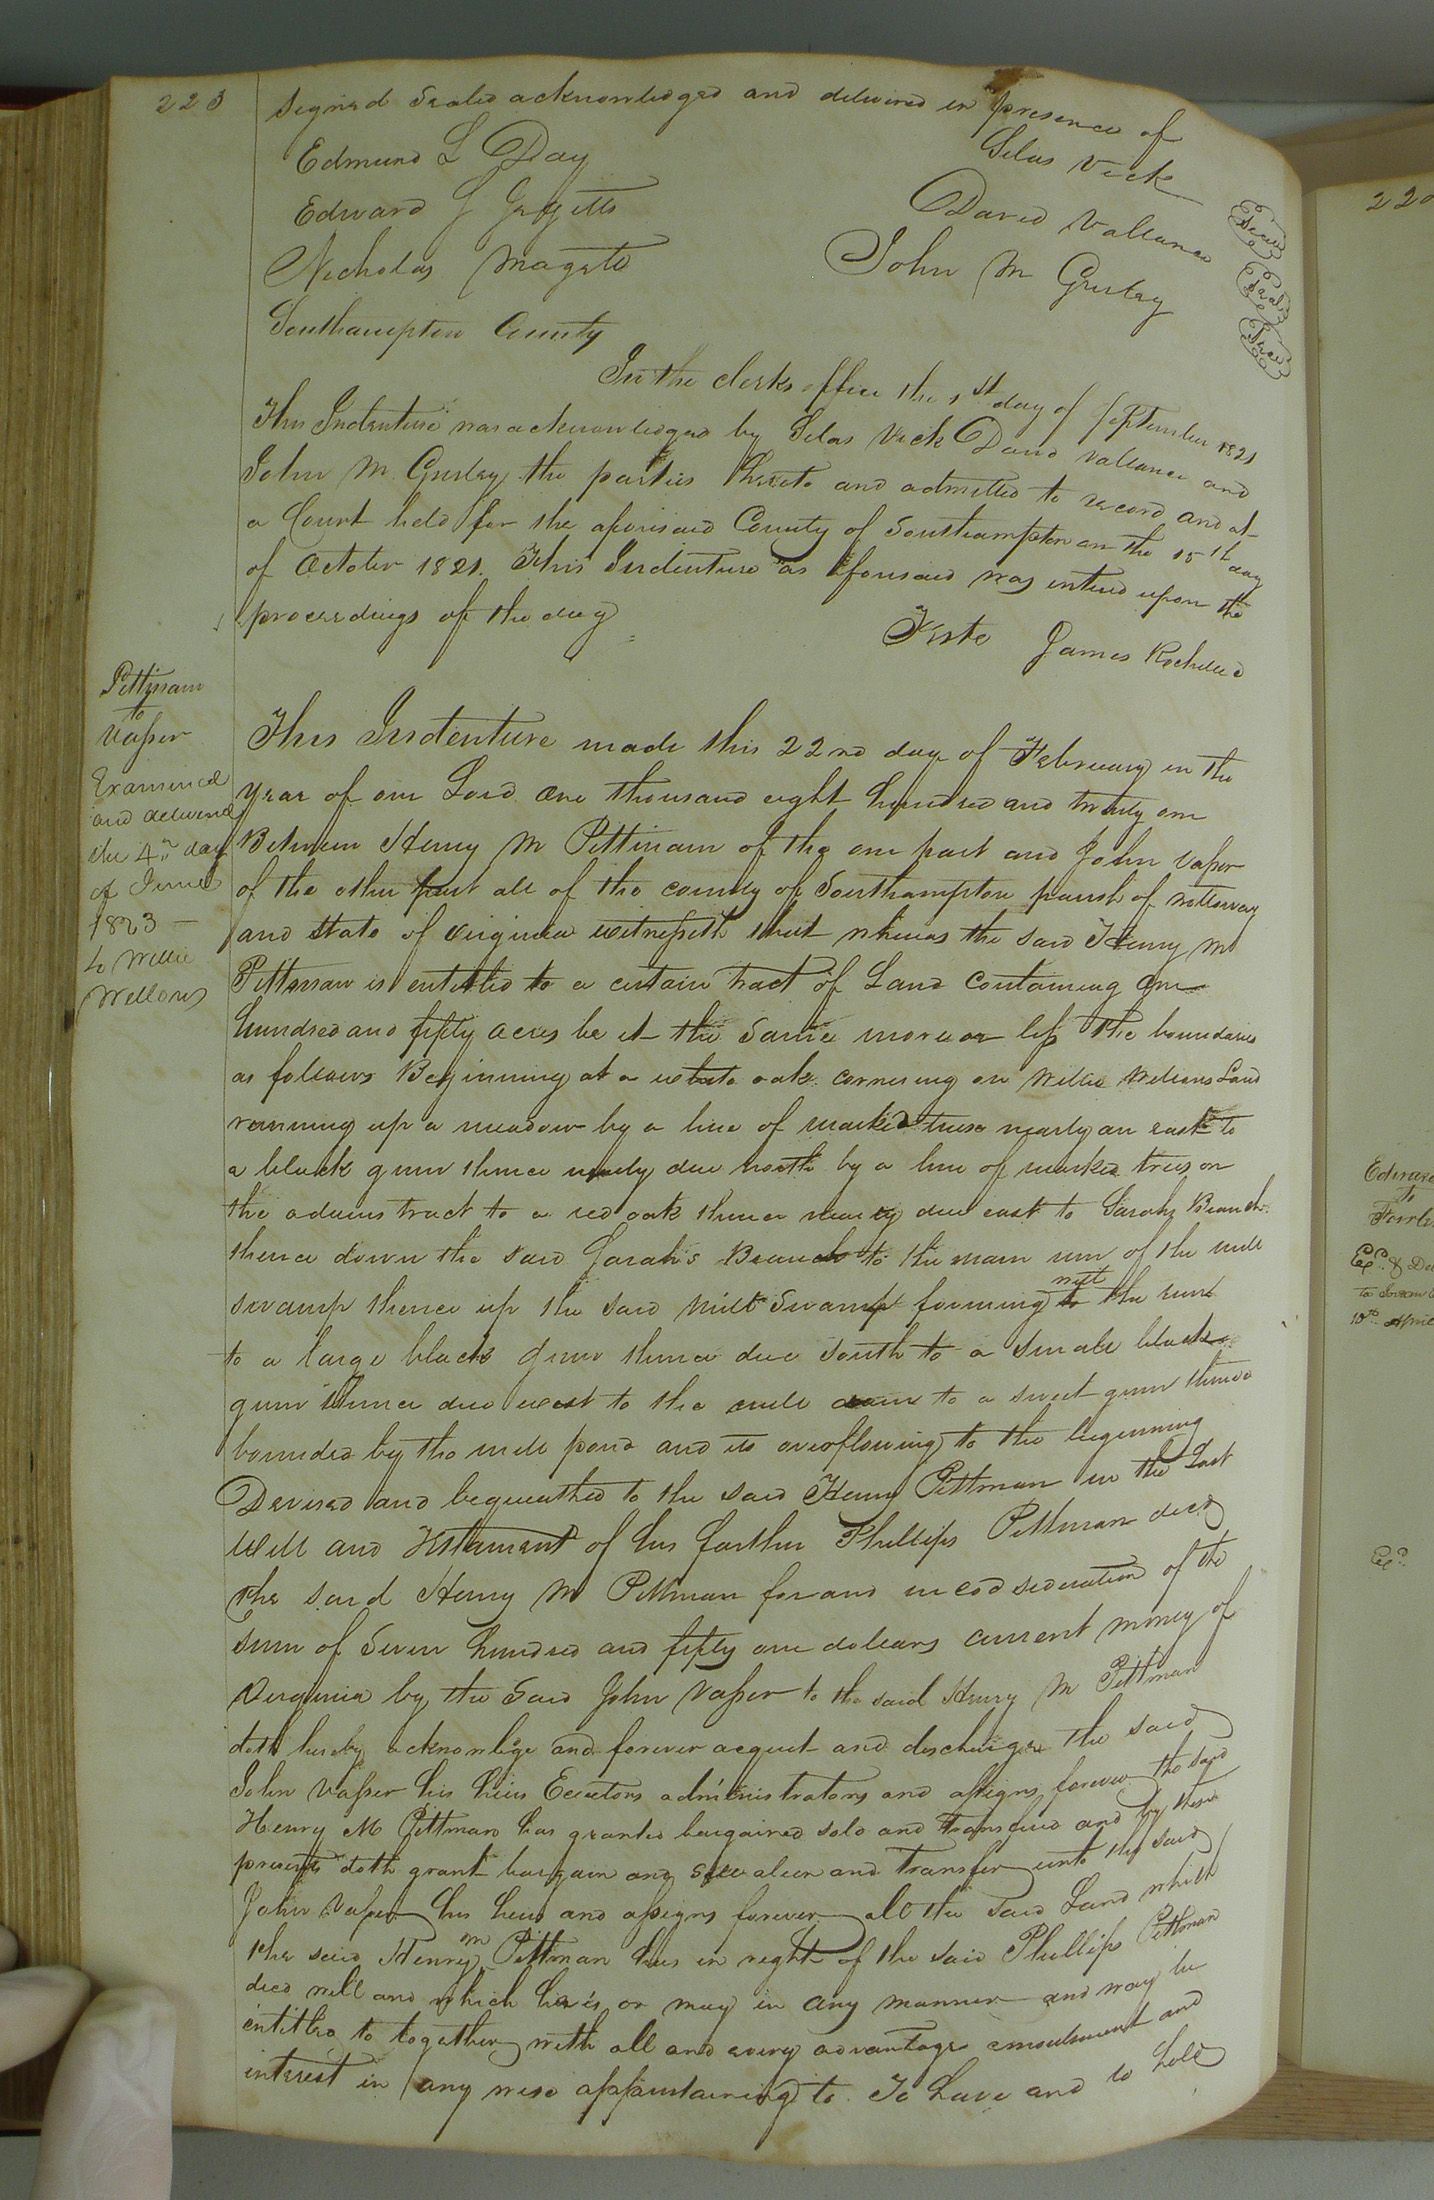 223
Signed Sealed acknowledged and delivered in presence of
Edmund L Day
Silas Vick
Seal
Edward
David Vallance
Seal
Nicholas Magett
John M Gurley
Seal
Southampton County
In the clerks office the 1st day of September 1821
This Indenture was acknowledged by Silas Vick David Vallance and
John M Gurley the parties thereto and admitted to record and at
a Court held for the aforesaid County of Southampton on the 15th day
of October 1821. This Indenture as aforesaid was entered upon the
proceedings of the day
Teste James Rochelle
Pittman
to
Vasser
Examined
and delivered
the 4th day
of June
1823 —
to Willie
Wellons
This Indenture made this 22nd day of February in the
year of our Lord One thousand eight hundred and twenty one
Between Henry M Pittman of the one part and John Vasser
of the other part all of the county of Southampton parish of nottoway
and state of virginia witnesseth that whereas the said Henry M
Pittman is entitled to a certain tract of Land Containing One
hundred and fifty acres be it the Same more or less the boundaries
as follows Beginning at a white oak cornering on Willie Wellons Land
running up a meadow by a line of marked trees nearly an east to
a black gum thence nearly due north by a line of marked trees on
the adams tract to a red oak thence nearly due east to Sarahs Branch
thence down the said Sarahs Branch to the main run of the mill
swamp thence up the said Mill Swamp forming not to the run
to a large black gum thence due South to a small black
gum thence due west to the mill dam to a sweet gum thence
bounded by the mill pond and its overflowing to the beginning
Devised and bequeathed to the said Henry Pittman in the Last
Will and Testament of his farther Phillips Pittman decd
the said Henry M Pittman for and in consideration of the
sum of Seven hundred and fifty one dollars current money of
Virginia by the Said John Vasser to the said Henry M Pittman
doth hereby acknowlege and forever acquit and discharge the said
John Vasser his heirs Executors administrators and assigns forever the said
Henry M Pittman has granted bargained sold and transfered and by these
presents doth grant bargain and sell alien and transfer unto the said
John Vasser his heirs and assigns forever all the said Land which
the said Henry M Pittman has in right of the said Phillips Pittman
decd will and which he is or may in any manner and way be
entitled to together with all and every advantage emolument and
interest in any wise appurtaining to. To have and to hold
Edward
to
10th April